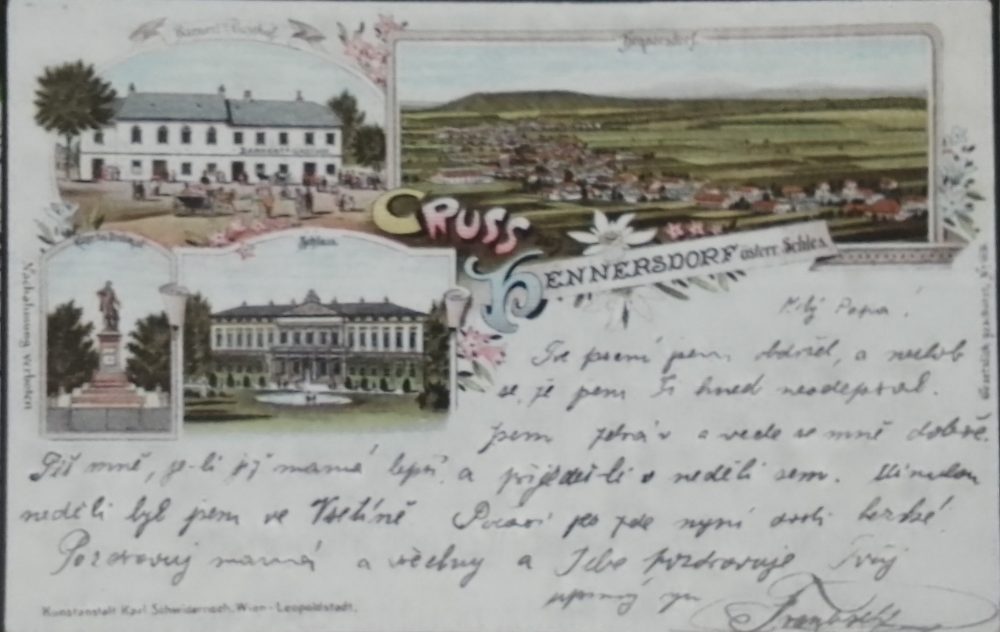 Schloss
GRUSS
HENNERSDORF österr. Schles.
Nachahmung verboten
Milý Papa!
psaní jsem obdržel, a nezlob
se, že jsem Ti hned neodepsal.
jsem zdráv a vede se mně dobře.
Piš mně, je-li již mamá lépe, a přijedeš-li v neděli sem. Minulou
neděli byl jsem ve Vsetíně. Počasí je zde nyní dosti hezké.
Pozdravuj mamá a všechny a Tebe pozdravuje Tvůj
upřímný syn
Kunstanstalt Karl Schwidernoch, Wien-Leopoldstadt.